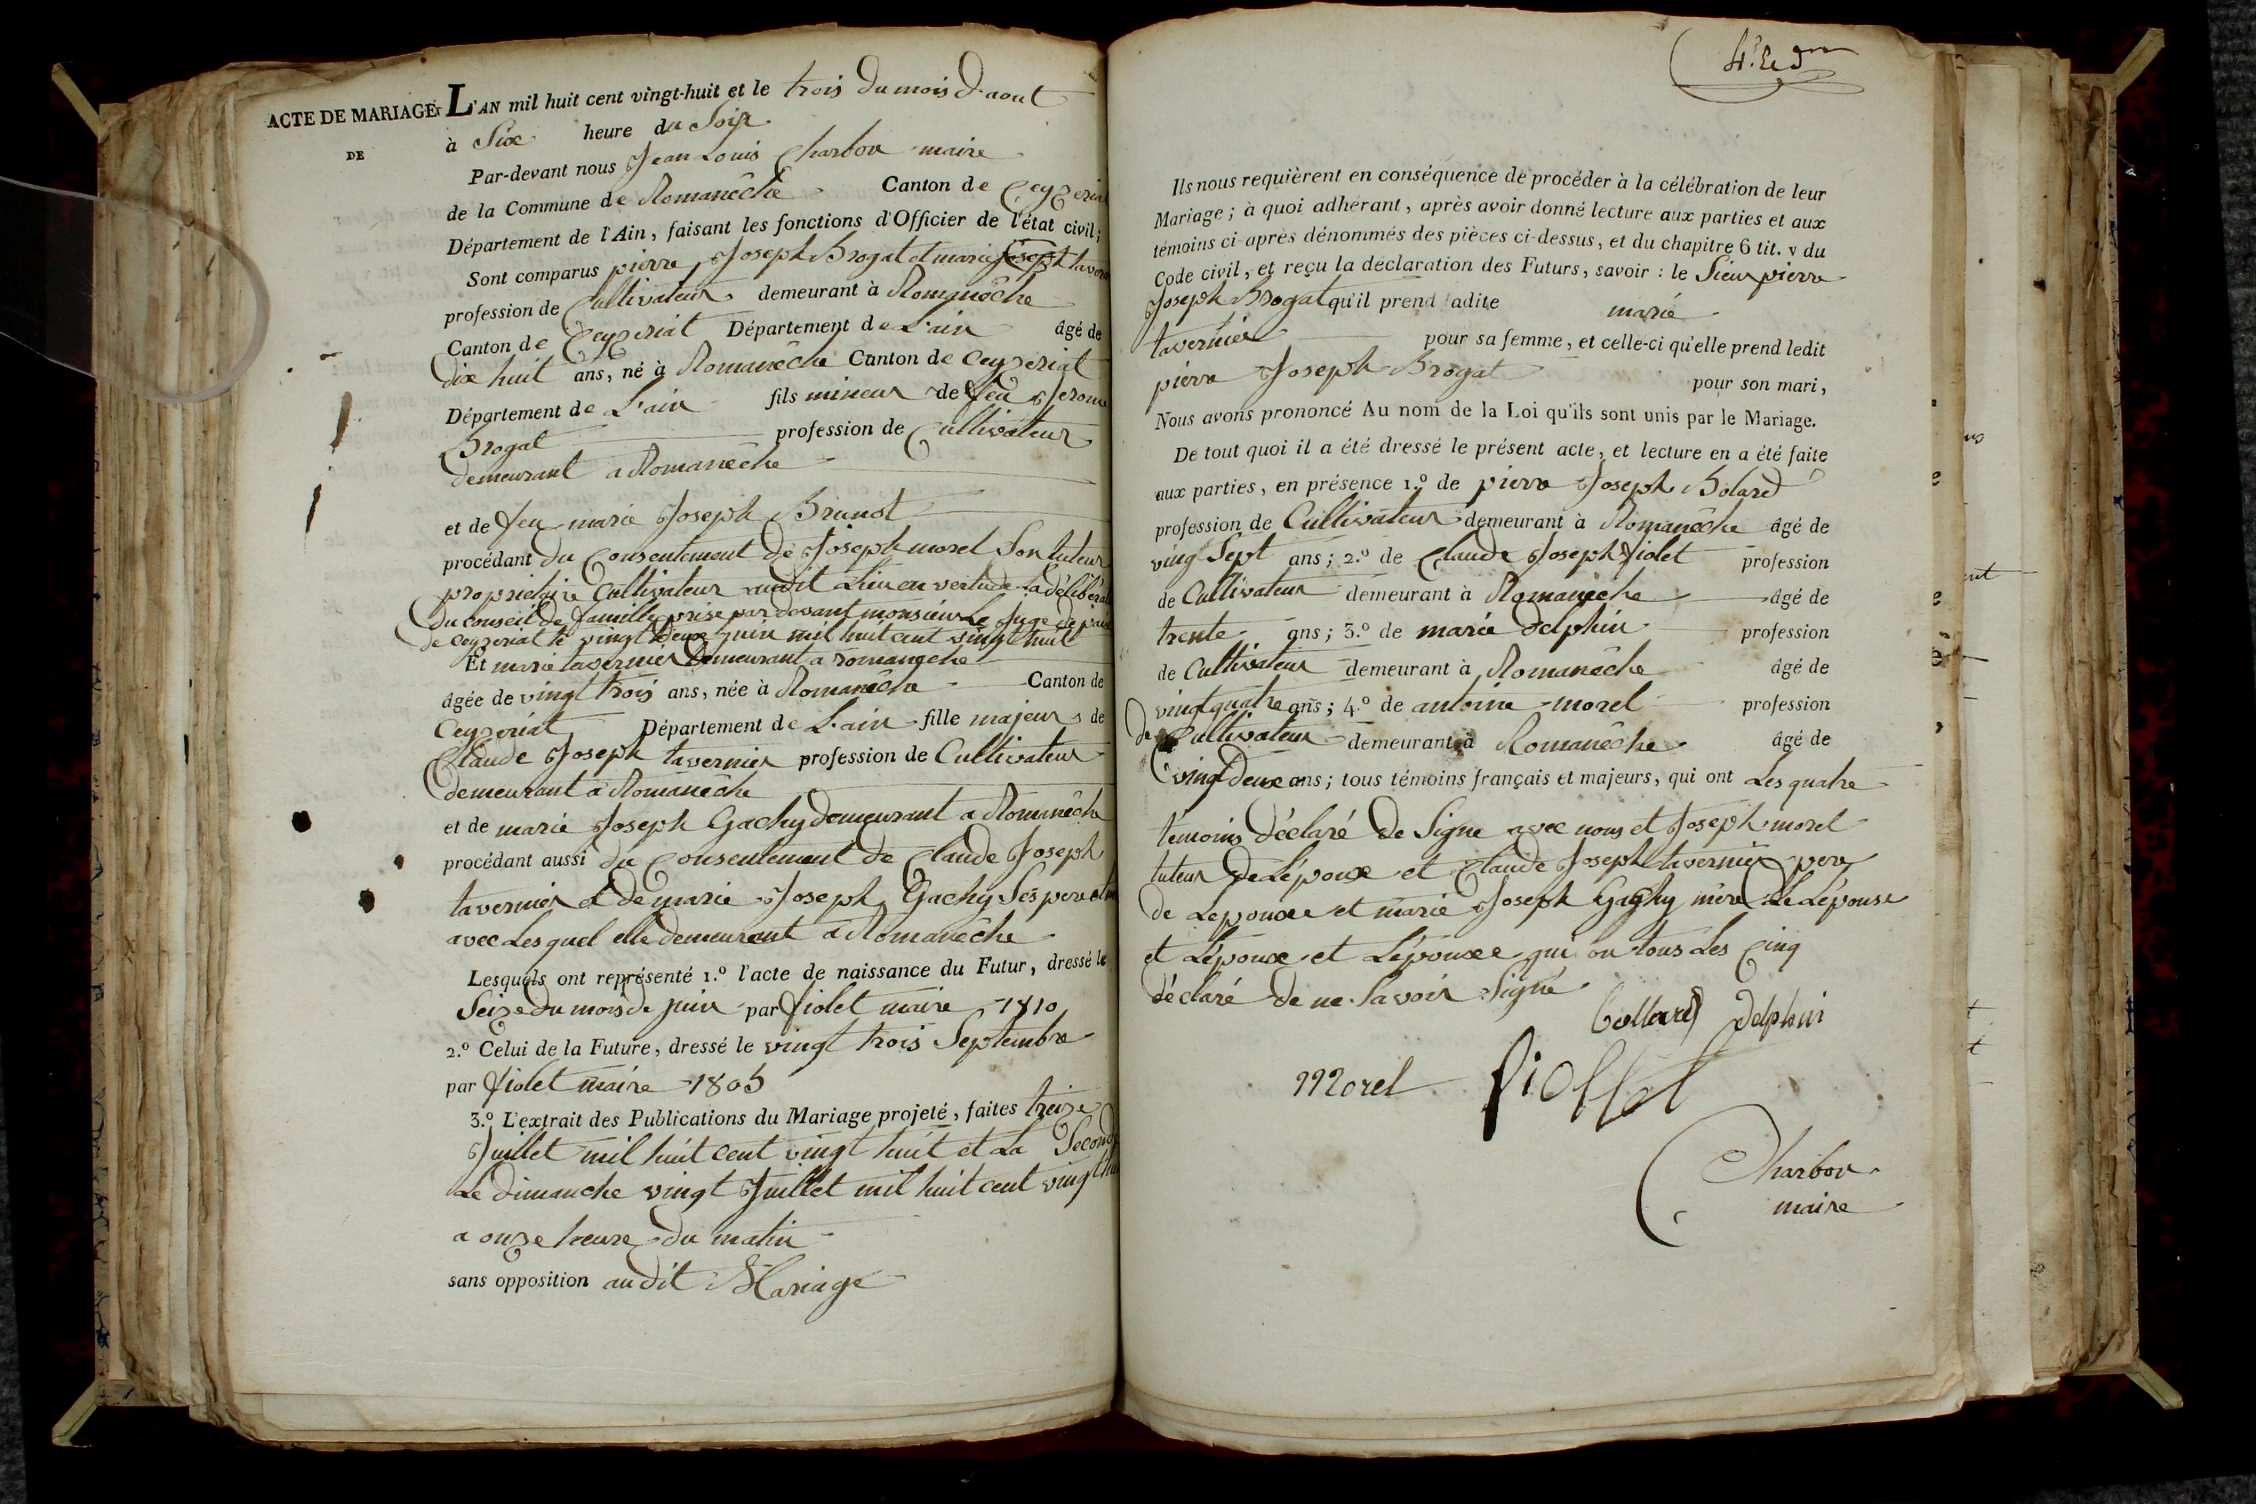 ACTE DE MARIAGE
DE
L'AN mil huit cent vingt-huit et le trois du mois d'aout
à Six heure du Soir
Par-devant nous Jean Louis Charbon maire
de la Commune de Romanêche Canton de Ceyzeriat
Département de l'Ain, faisant les fonctions d'Officier de l'état civil;
Sont comparus pierre Joseph Brogat et marie Joseph taver
profession de Cultivateur demeurant à Romanêche
Canton de Ceyzeriat Département de L'ain âgé de
dix huit ans, né à Romanêche Canton de Ceyzeriat
Département de L'ain fils mineur de feu Jerome
Brogat profession de Cultivateur
demeurant a Romanêche
et de feu marie Joseph Brunot
procédant du Consentement de Joseph morel Son tuteur
propriétaire Cultivateur audit Lieu en vertu de La déliber
du Conseil de famille prise par devant monsieur Le Juge de paix
de ceyzeriat le vingt Deux juin mil huit cent vingt huit
Et marie tavernier Demeurant a romaneche
âgée de vingt trois ans, née à Romanêche Canton de
Ceyzeriat Département de L'ain fille majeur de
Claude Joseph tavernier profession de Cultivateur
demeurant a Romanêche
et de marie Joseph Gachy demeurant a Romanêche
procédant aussi du Consentement de Claude Joseph
tavernier et de marie Joseph Gachy Ses pere et
avec Lesquel elle demeurent a Romanêche
Lesquels ont représenté 1.º l'acte de naissance du Futur, dressé le
Seize du mois de juin par fiolet maire 1810
2.º Celui de la Future, dressé le vingt trois Septembre
par fiolet maire 1805
3.º L'extrait des Publications du Mariage projeté, faites treize
Juillet mil huit cent vingt huit et La Second
Le dimanche vingt Juillet mil huit cent vingt hu
a onze heure du matin
sans opposition audit Mariage
Ils nous requièrent en conséquence de procéder à la célébration de leur
Mariage; à quoi adhérant, après avoir donné lecture aux parties et aux
témoins ci-après dénommés des pièces ci-dessus, et du chapitre 6 tit. v du
Code civil, et reçu la déclaration des Futurs, savoir : le Sieur pierre
Joseph Brogat qu'il prend ladite marie
tavernier pour sa femme, et celle-ci qu'elle prend ledit
pierre Joseph Brogat pour son mari,
Nous avons prononcé Au nom de la Loi qu'ils sont unis par le Mariage.
De tout quoi il a été dressé le présent acte, et lecture en a été faite
aux parties, en présence 1.º de pierre Joseph Bolard
profession de Cultivateur demeurant à Romanêche âgé de
ving Sept ans; 2.º de Claude Joseph fiolet profession
de Cultivateur demeurant à Romanêche âgé de
trente ans; 3.º de marie delphin profession
de Cultivateur demeurant à Romanêche âgé de
vingt quatre ans; 4.º de antoine morel profession
de Cultivateur demeurant à Romanêche âgé de
vingt Deux ans; tous témoins français et majeurs, qui ont Les quatre
temoins déclaré de Signe avec nous et Joseph morel
tuteur De L'époux et Claude Joseph tavernier pere
de Lepouxe et marie Joseph Gachy mère de L'épouse
et L'époux et L'épouxe qui on tous Les Cinq
déclaré de ne Savoir Signé
bollard delphin
morel fiollet
Charbon
maire